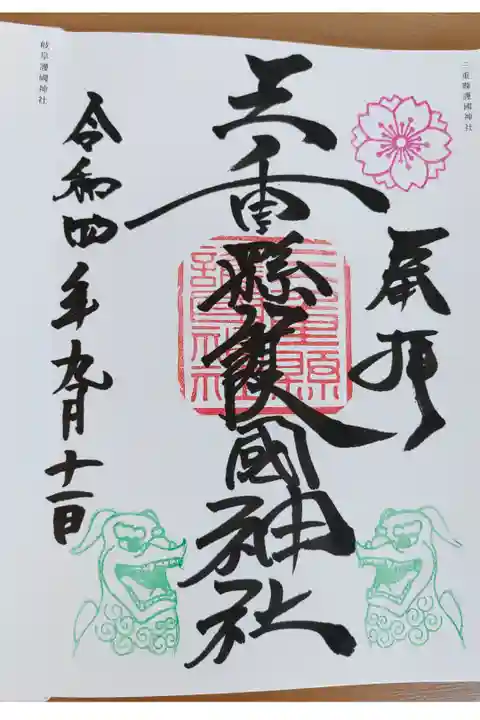 三重縣護國神社
奉拝
三重縣護國神社
令和四年九月十一日
岐阜護國神社